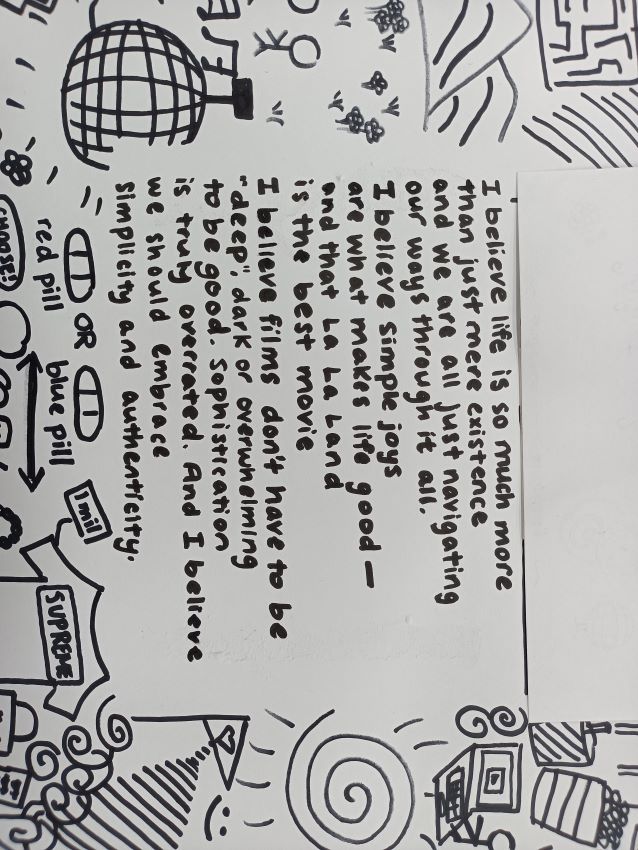 I believe life is so much more
than just mere existence
and we are all just navigating
our ways through it all.
I believe simple joys
are what makes life good —
and that La La Land
is the best movie
I believe films don't have to be
"deep", dark or overwhelming
to be good. Sophistication
is truly overrated. And I believe
we should embrace
simplicity and authenticity.
red pill OR blue pill
CHOOSE:)
1 mil
SUPREME
$$